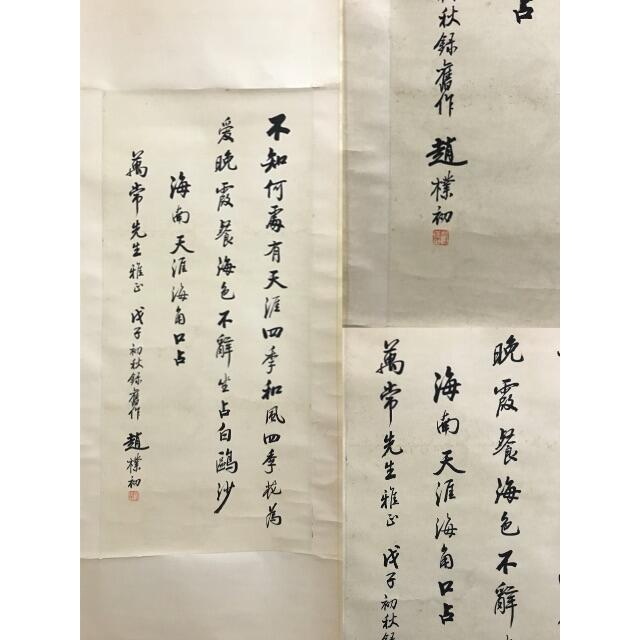 不知何處有天涯四季和風四季花為
愛晚霞餐海色不辭坐占白鷗沙
海南天涯海角口占
萬常先生雅正 戊子初秋錄舊作 趙樸初
占
秋錄舊作 趙樸初
晚霞餐海色不辭
海南天涯海角口占
萬常先生雅正 戊子初秋錄